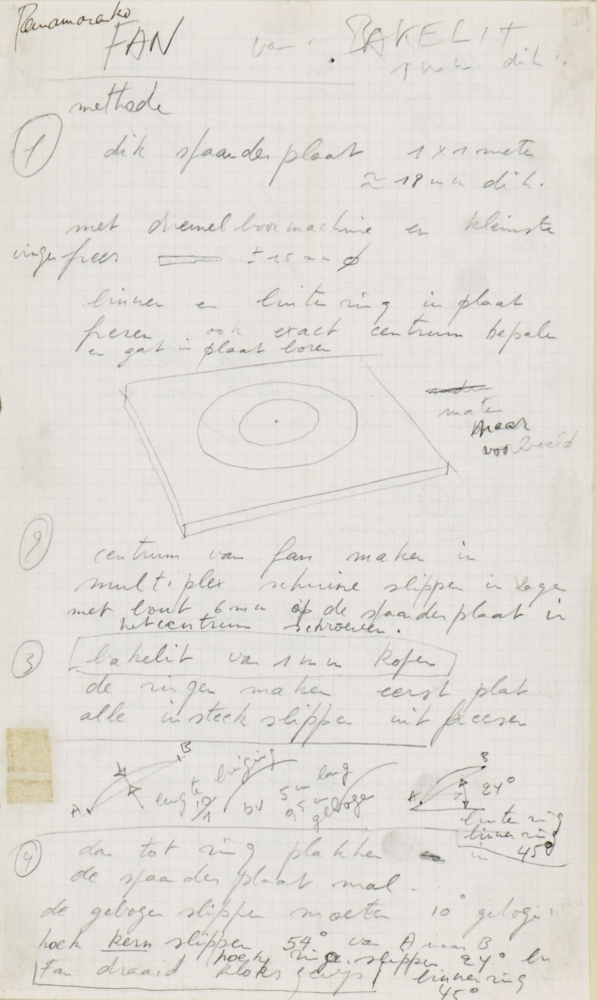 Panamarenko
FAN van BAKELIT
1 mm dik
methode
1 dik spaanderplaat 1 x 1 meter
≈ 18 mm dik.
met dremel boormachine en kleinste
vingerfrees ± 1,5 mm ø
binnen en buitering in plaat
frezen ook exact centrum bepalen
en gat in plaat boren
maten
naar
voorbeeld
2 centrum van fan maken in
multiplex schuine slippen in zagen
met bout 6 mm op de spaanderplaat in
het centrum schroeven.
3 bakelit van 1 mm kopen
de ringen maken eerst plat
alle insteek slippen uit freesen
A B
lengte buiging
10/1 bv 5 m lang
0,5 m geboge
A B 24°
buite ring
binnering
in 45°
4 dan tot ring plakken in
de spaanderplaat mal.
de gebogen slippen moeten 10° geboge
hoek kern slippen 54° van A naar B
hoek ringe slippen 24° en
Fan draaid kloksgewijs binnering
45°